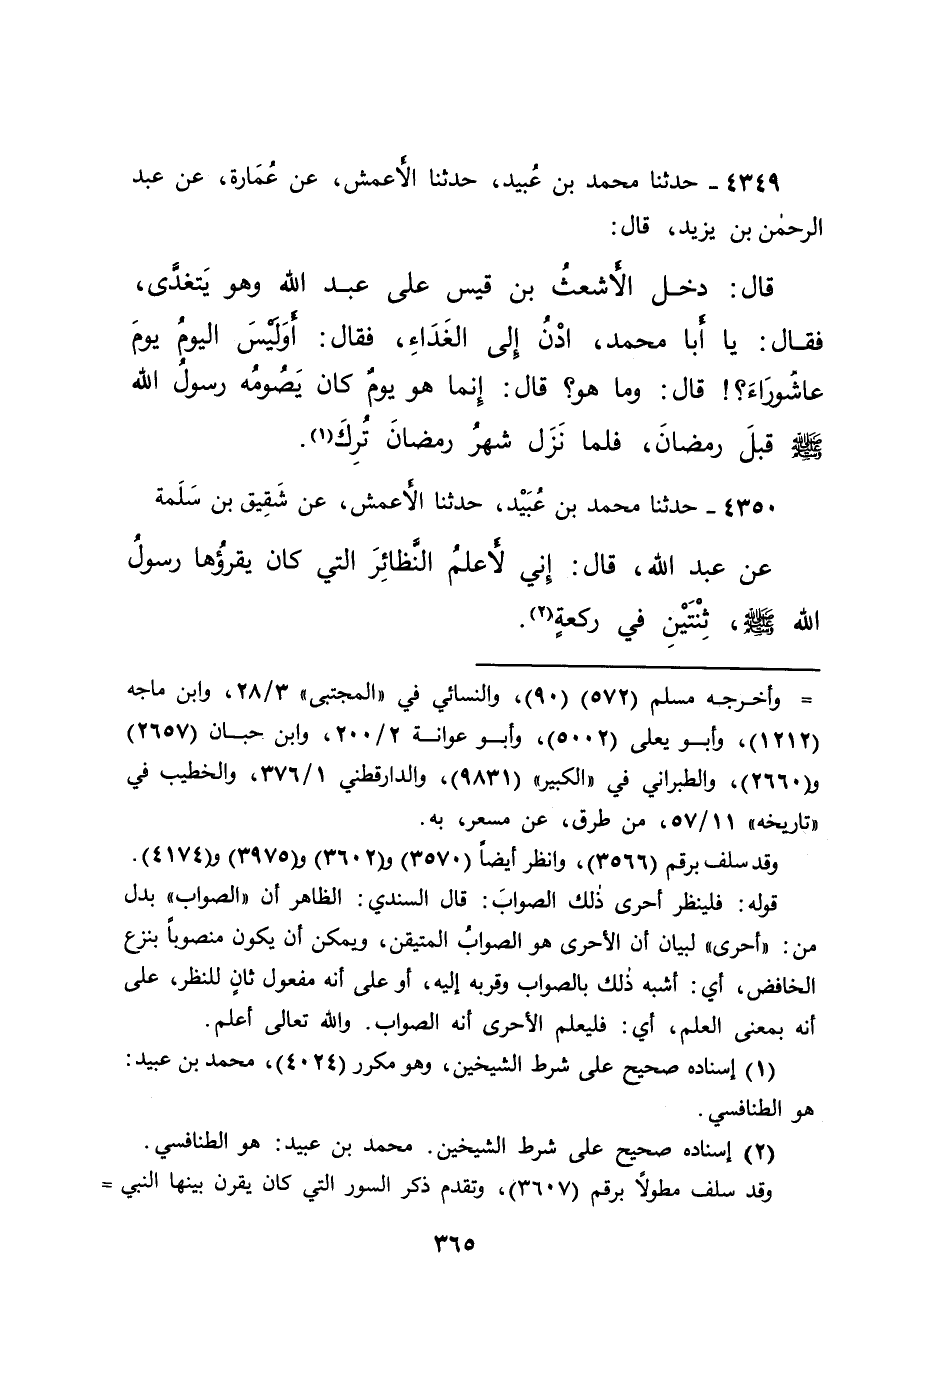 ٤٣٤٩ ـ حدثنا محمد بن عُبيد، حدثنا الأَعمش، عن عُمَارة، عن عبد
الرحمٰن بن يزيد، قال:
قال: دخل الأَشعثُ بن قيس على عبد الله وهو يَتغدَّى،
فقال: يا أَبا محمد، ادْنُ إِلى الغَدَاءِ، فقال: أَوَلَيْسَ اليومُ يومَ
عاشُورَاءَ؟! قال: وما هو؟ قال: إِنما هو يومٌ كان يَصُومُه رسولُ الله
ﷺ قبلَ رمضانَ، فلما نَزَل شهرُ رمضانَ تُرِكَ(١).
٤٣٥٠ ـ حدثنا محمد بن عُبَيْد، حدثنا الأَعمش، عن شَقِيق بن سَلَمة
عن عبد الله، قال: إِني لأَعلمُ النَّظائِرَ التي كان يقرؤُها رسولُ
الله ﷺ، ثِنْتَيْنِ في ركعةٍ(٢).
= وأخرجه مسلم (٥٧٢) (٩٠)، والنسائي في «المجتبى» ٢٨/٣، وابن ماجه
(١٢١٢)، وأبو يعلى (٥٠٠٢)، وأبو عوانة ٢٠٠/٢، وابن حبان (٢٦٥٧)
و(٢٦٦٠)، والطبراني في «الكبير» (٩٨٣١)، والدارقطني ٣٧٦/١، والخطيب في
«تاريخه» ٥٧/١١، من طرق، عن مسعر، به.
وقد سلف برقم (٣٥٦٦)، وانظر أيضاً (٣٥٧٠) و(٣٦٠٢) و(٣٩٧٥) و(٤١٧٤).
قوله: فلينظر أحرى ذٰلك الصوابَ: قال السندي: الظاهر أن «الصواب» بدل
من: «أحرى» لبيان أن الأحرى هو الصوابُ المتيقن، ويمكن أن يكون منصوباً بنزع
الخافض، أي: أشبه ذٰلك بالصواب وقربه إليه، أو على أنه مفعول ثانٍ للنظر، على
أنه بمعنى العلم، أي: فليعلم الأحرى أنه الصواب. والله تعالى أعلم.
(١) إسناده صحيح على شرط الشيخين، وهو مكرر (٤٠٢٤)، محمد بن عبيد:
هو الطنافسي.
(٢) إسناده صحيح على شرط الشيخين. محمد بن عبيد: هو الطنافسي.
وقد سلف مطولاً برقم (٣٦٠٧)، وتقدم ذكر السور التي كان يقرن بينها النبي =
٣٦٥